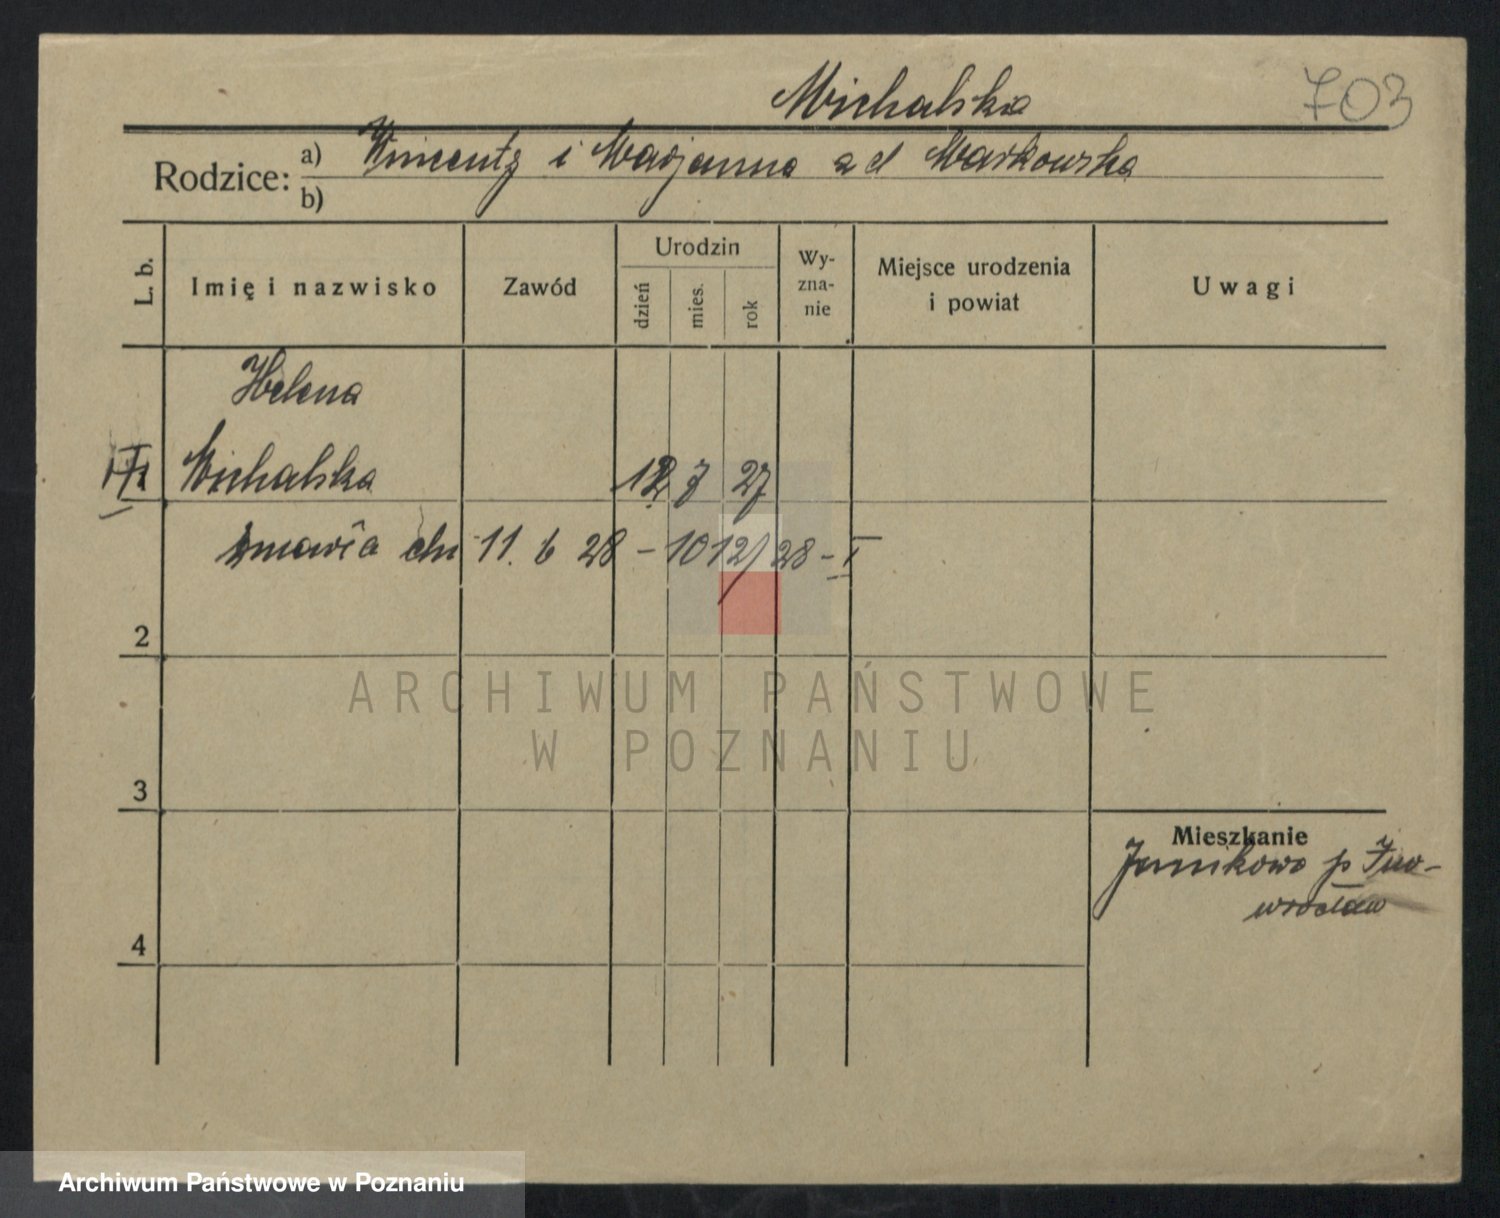 703
Michalska
Rodzice: a) Wincenty i Marjanna z d Markowska
b)
L. b. Imię i nazwisko Zawód Urodzin dzień mies. rok Wy-zna-nie Miejsce urodzenia i powiat Uwagi
Helena
Michalska 12 7 27
zmarła 11. 6 28 – 10 12/28 – I
2
ARCHIWUM PAŃSTWOWE
W POZNANIU
3
Mieszkanie
Janikowo p Ino-
wrocław
4
Archiwum Państwowe w Poznaniu